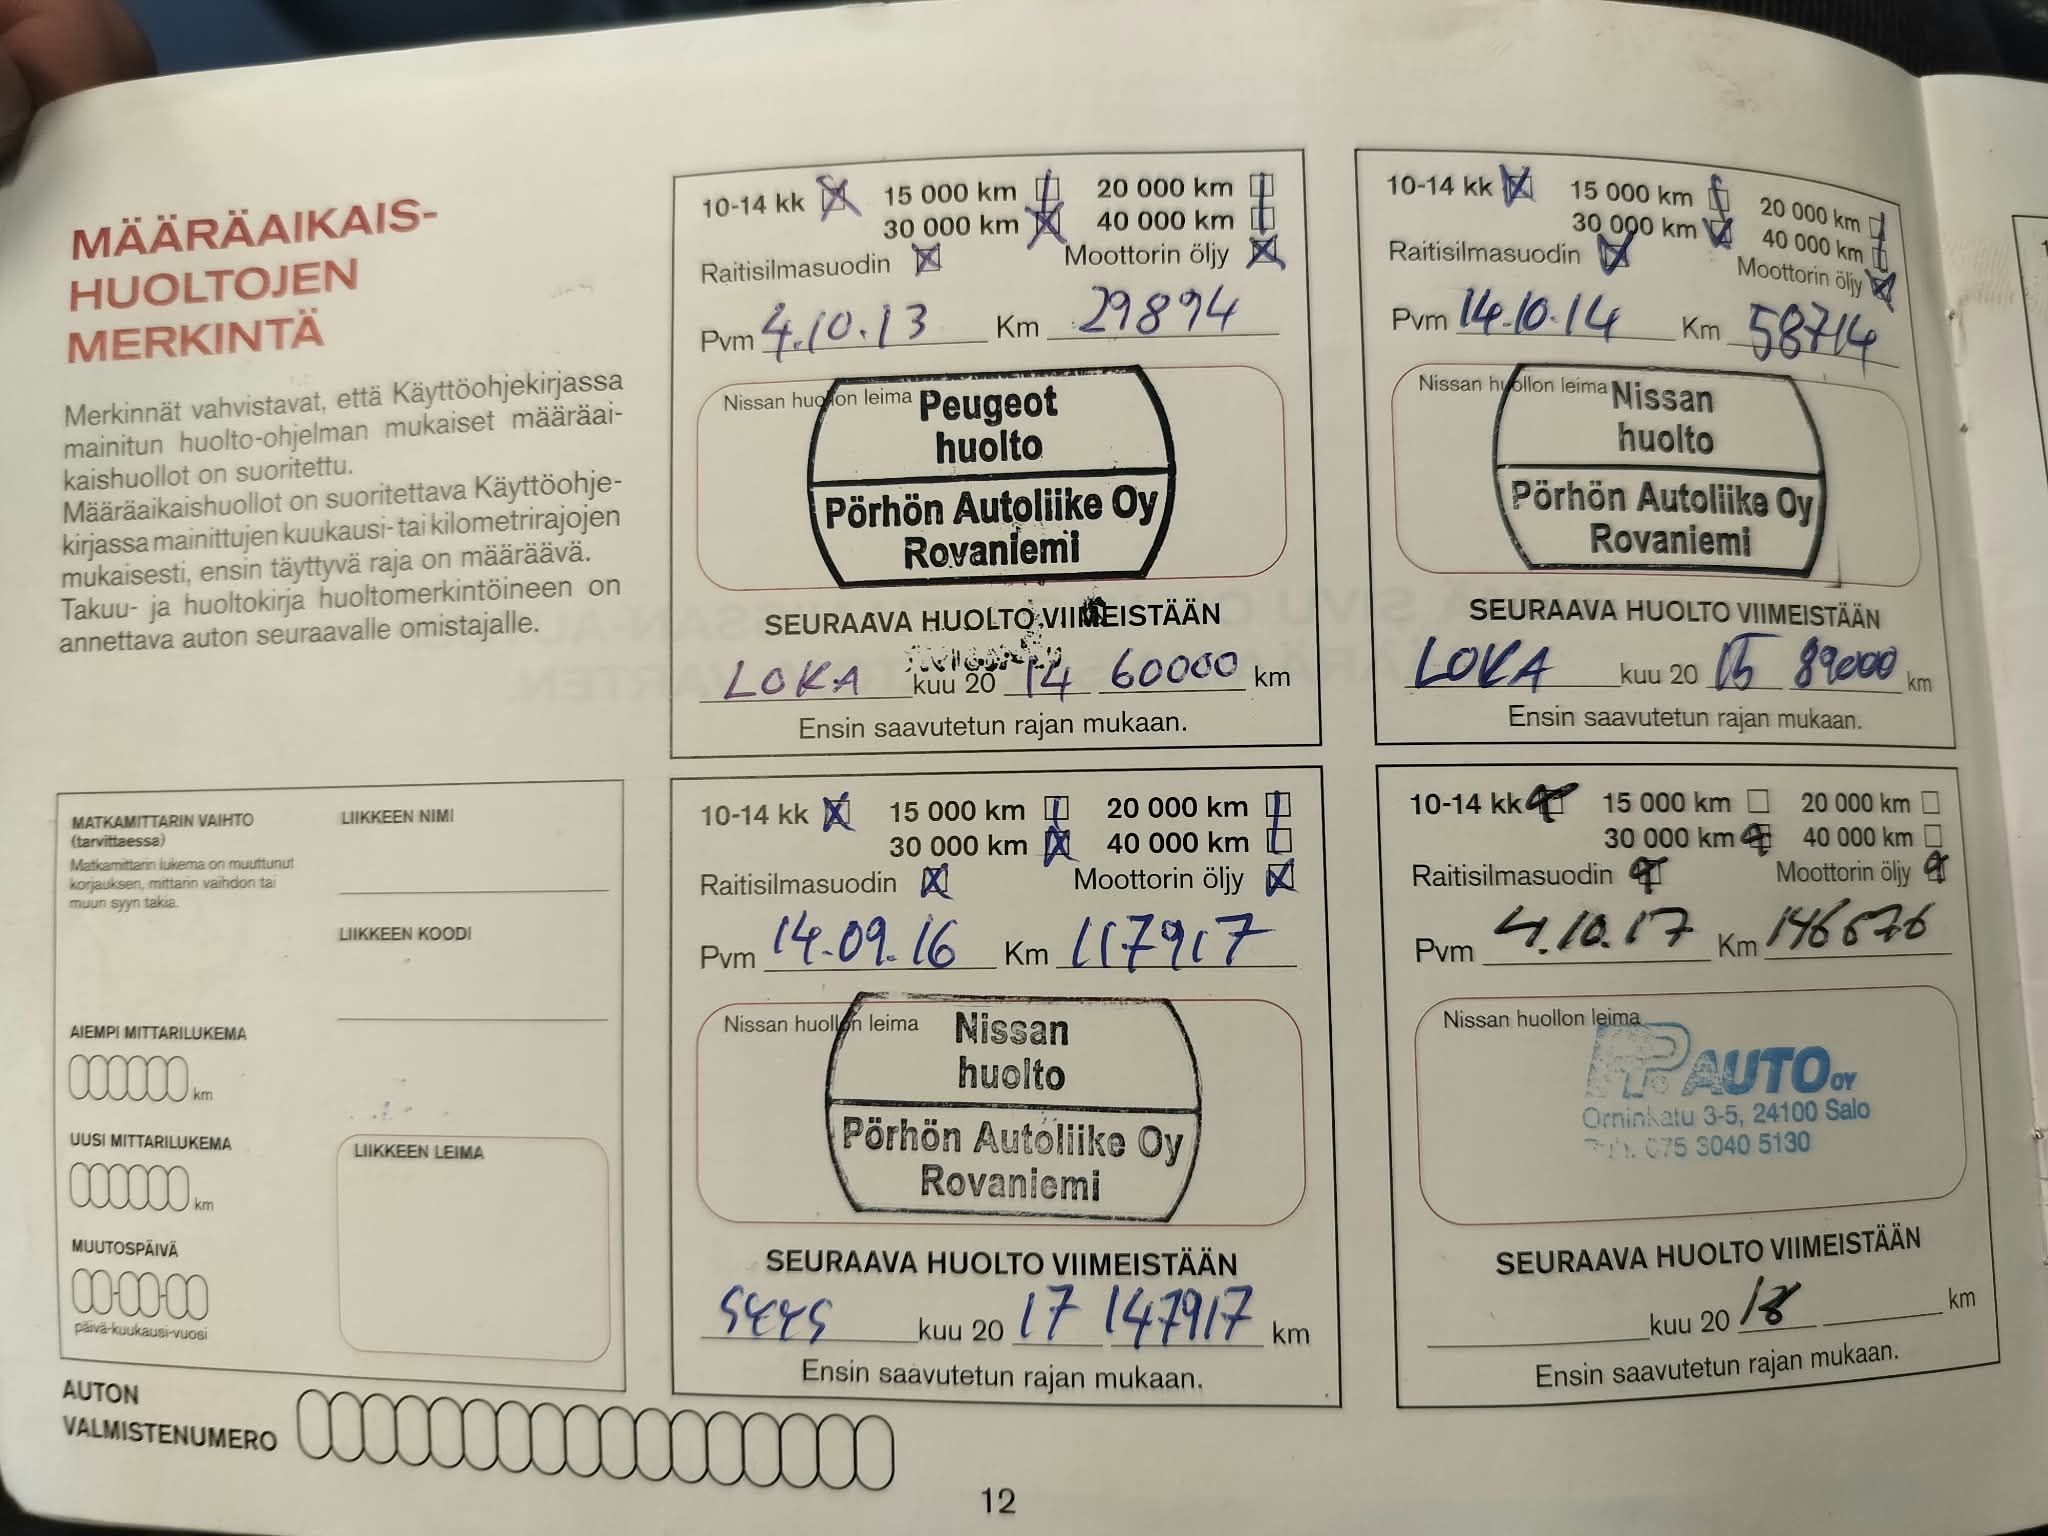 MÄÄRÄAIKAIS-
HUOLTOJEN
MERKINTÄ
Merkinnät vahvistavat, että Käyttöohjekirjassa
mainitun huolto-ohjelman mukaiset määräai-
kaishuollot on suoritettu.
Määräaikaishuollot on suoritettava Käyttöohje-
kirjassa mainittujen kuukausi- tai kilometrirajojen
mukaisesti, ensin täyttyvä raja on määräävä.
Takuu- ja huoltokirja huoltomerkintöineen on
annettava auton seuraavalle omistajalle.
MATKAMITTARIN VAIHTO
(tarvittaessa)
Matkamittarin lukema on muuttunut
korjauksen, mittarin vaihdon tai
muun syyn takia.
LIIKKEEN NIMI
LIIKKEEN KOODI
AIEMPI MITTARILUKEMA
km
UUSI MITTARILUKEMA
km
MUUTOSPÄIVÄ
päivä-kuukausi-vuosi
LIIKKEEN LEIMA
AUTON
VALMISTENUMERO
10-14 kk 15 000 km 20 000 km
30 000 km 40 000 km
Raitisilmasuodin Moottorin öljy
Pvm 4.10.13 Km 29894
Nissan huollon leima
Peugeot
huolto
Pörhön Autoliike Oy
Rovaniemi
SEURAAVA HUOLTO VIIMEISTÄÄN
LOKA kuu 20 14 60000 km
Ensin saavutetun rajan mukaan.
10-14 kk 15 000 km 20 000 km
30 000 km 40 000 km
Raitisilmasuodin Moottorin öljy
Pvm 14.10.14 Km 58714
Nissan huollon leima
Nissan
huolto
Pörhön Autoliike Oy
Rovaniemi
SEURAAVA HUOLTO VIIMEISTÄÄN
LOKA kuu 20 15 89000 km
Ensin saavutetun rajan mukaan.
10-14 kk 15 000 km 20 000 km
30 000 km 40 000 km
Raitisilmasuodin Moottorin öljy
Pvm 14.09.16 Km 117917
Nissan huollon leima
Nissan
huolto
Pörhön Autoliike Oy
Rovaniemi
SEURAAVA HUOLTO VIIMEISTÄÄN
SYYS kuu 20 17 147917 km
Ensin saavutetun rajan mukaan.
10-14 kk 15 000 km 20 000 km
30 000 km 40 000 km
Raitisilmasuodin Moottorin öljy
Pvm 4.10.17 Km 146676
Nissan huollon leima
AUTO OY
Örninkatu 3-5, 24100 Salo
075 3040 5130
SEURAAVA HUOLTO VIIMEISTÄÄN
kuu 20 18 km
Ensin saavutetun rajan mukaan.
12